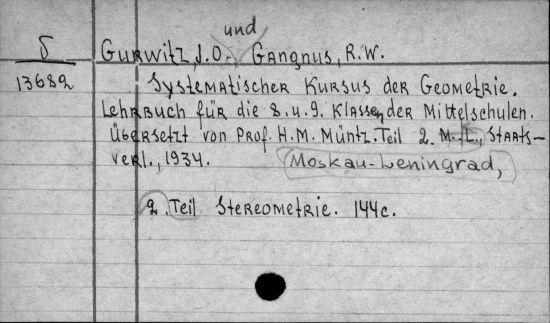 und
δ Gurwitz, J.O., Gangnus, R.W.
13682 Systematischer Kursus der Geometrie.
Lehrbuch für die 8. u. 9. Klassen der Mittelschulen.
Übersetzt von Prof. H. M. Müntz. Teil 2. M.-L., Staats-
verl., 1934. Moskau-Leningrad,
2. Teil Stereometrie. 144c.